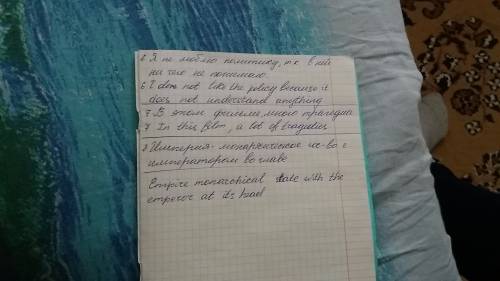 6 Я не люблю политику, т.к в ней
не чего не понимаю.
6 I does not like the policy because it
does not understand anything
7 В этом фильме, много трагедий
7 In this film, a lot of tragedies
8 Империя - монархическое гос-во с
императором во главе
Empire monarchical state with the
emperor at its head